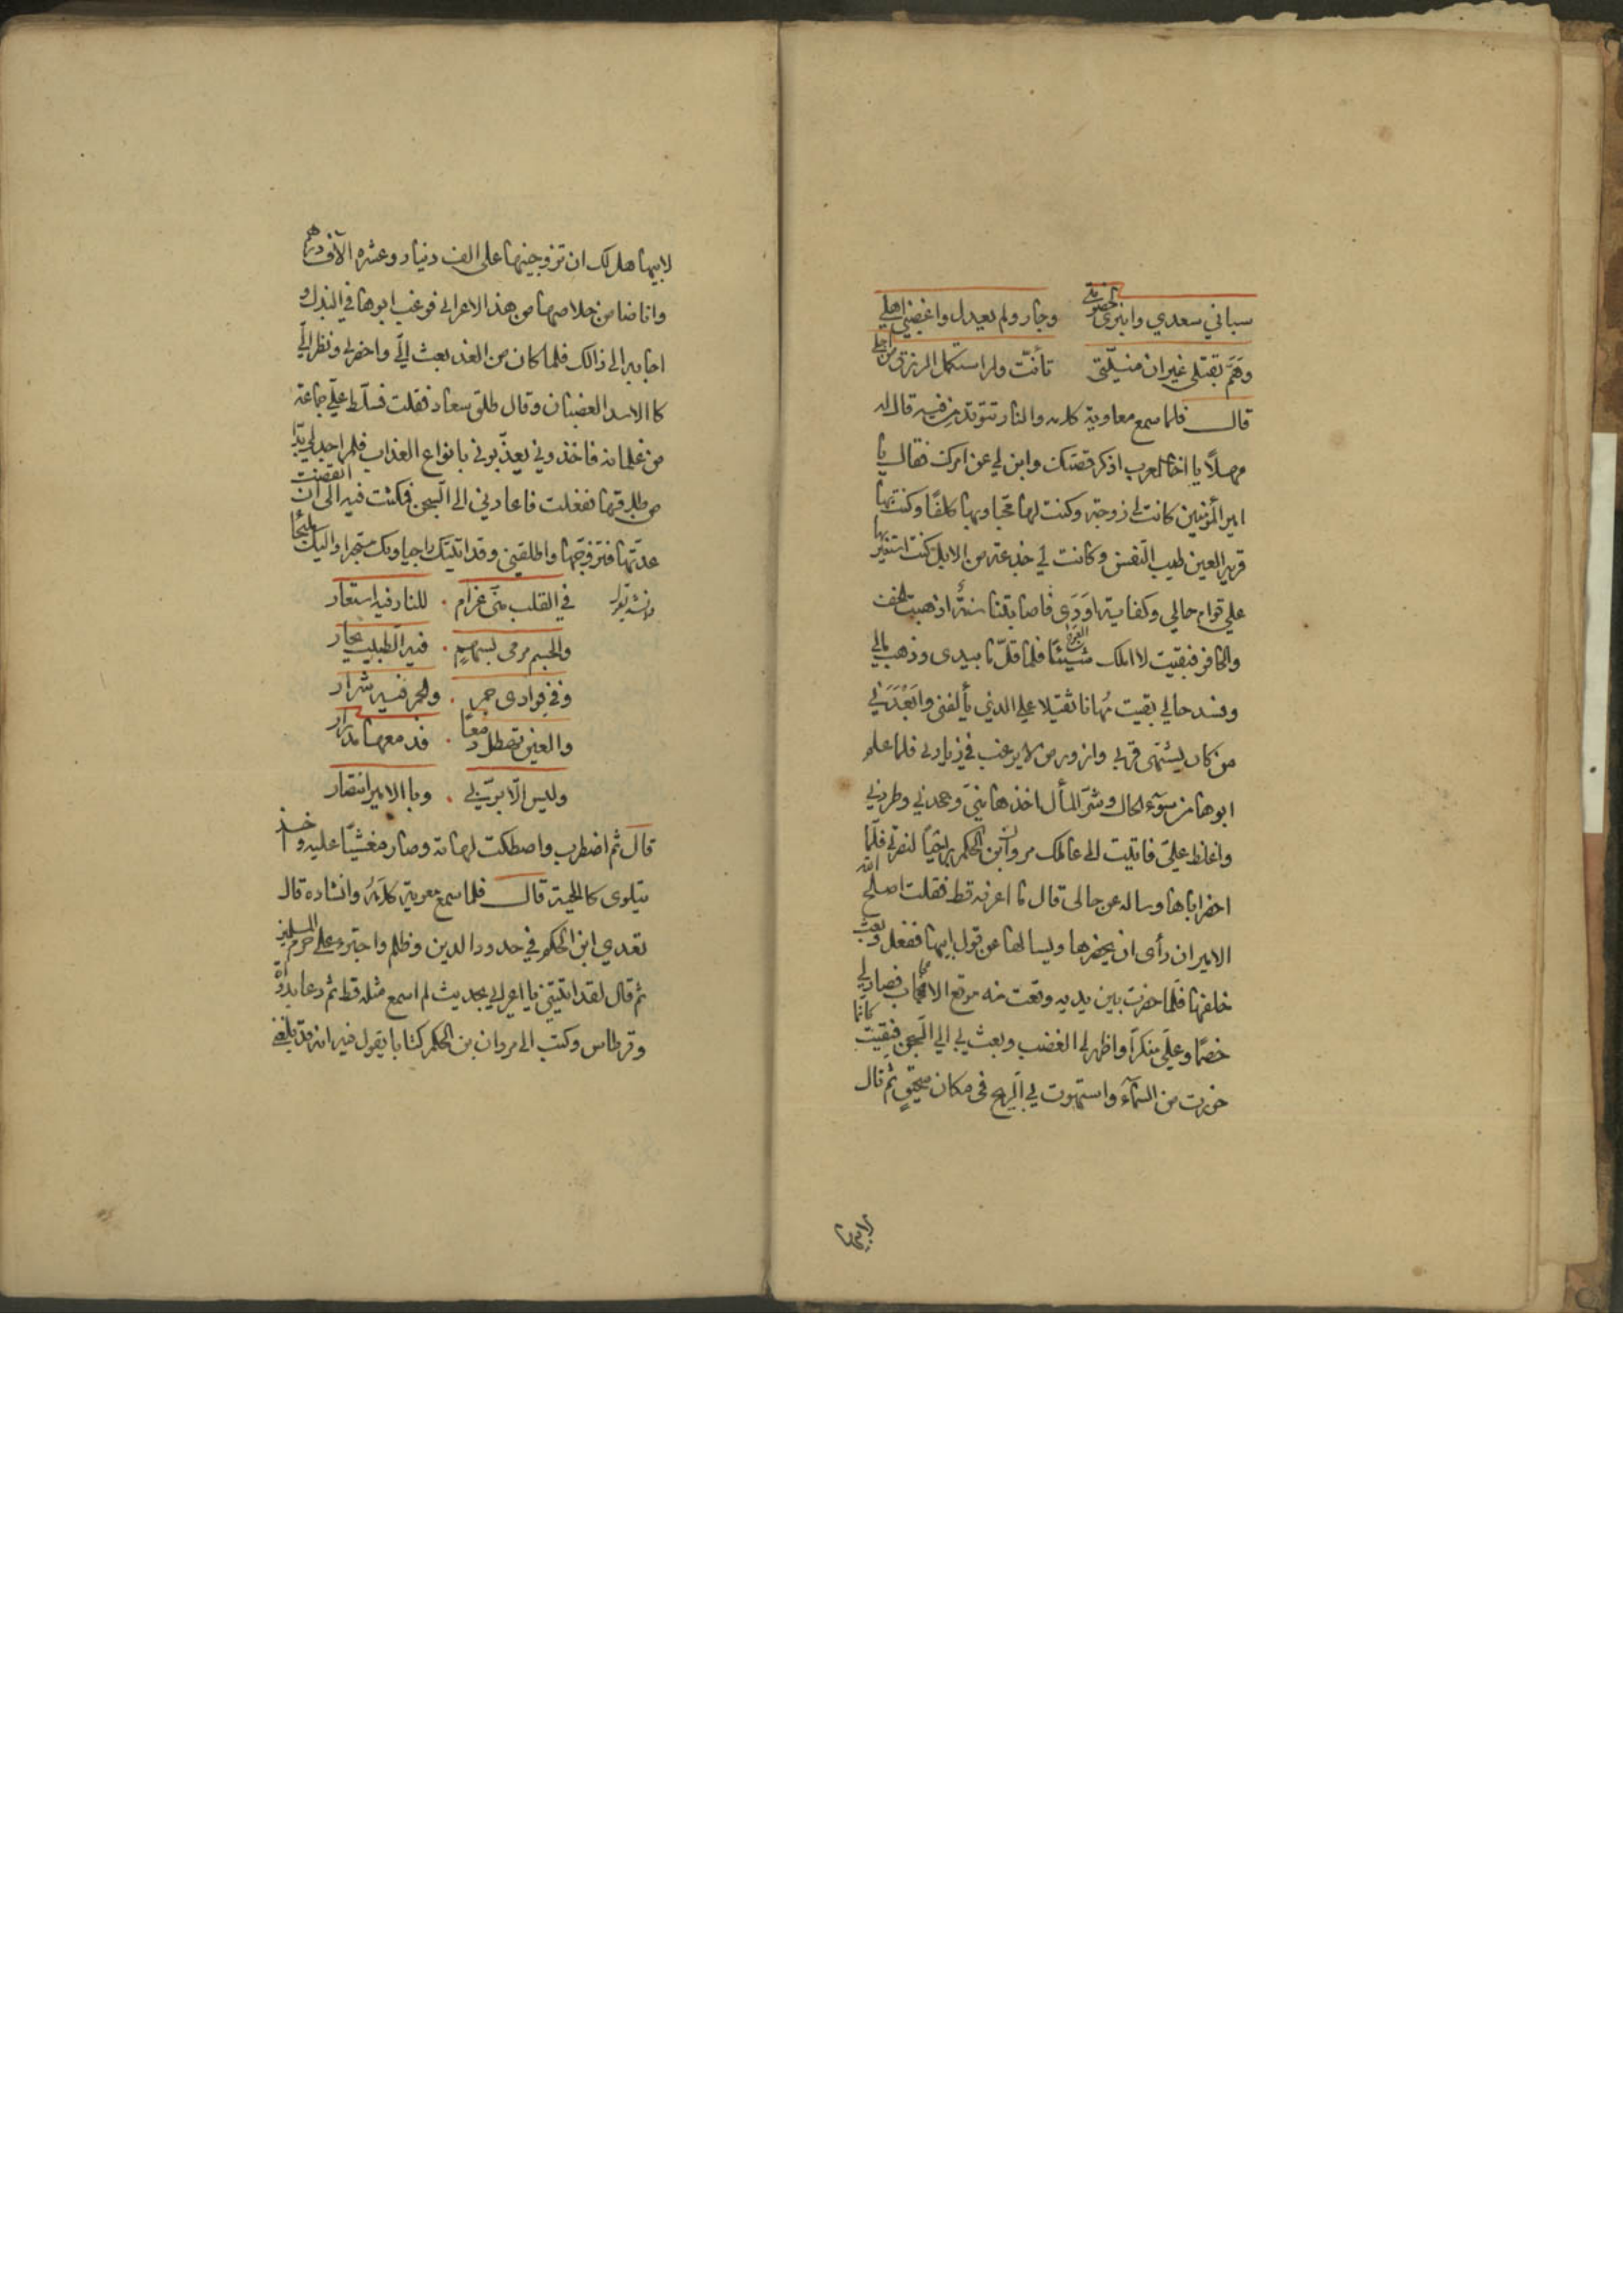 سباني سعدي وانبرى لخصومتي وجار ولم يعدل واغصبني اهلي
وهَمَّ بقتلي غير ان منيّتي تأنّت ولم استكمل الرزق من اجلي
قال فلما سمع معاوية كلامه والنار تتوقد من فيه قال له
مهلاً يا اخا العرب اذكر قصتك وابن لي عن امرك فقال يا
امير المؤمنين كانت لي زوجة وكنت لها محبا وبها كلفًا وكنت بها
قرير العين طيب النفس وكانت لي جذعة من الابل كنت استعين بها
على قوام حالي وكفاية اَوَدَي فاصابتنا سنةٌ اذهبت الخف
والحافر فبقيت لا املك شيئًا فلما قلّ ما بيدى وذهب مالي
وفسد حالي بقيت مُهانا ثقيلا على الذي يألفني وابْعَدَني
من كان يشتهى قربي وازور من لا يرغب في زيارتي فلما علم
ابوها من سوء الحال وشرّ المأل اخذها منيّ وجحدني وطردني
واغلظ عليّ فاتيت الى عاملك مروان ابن الحكم راجيًا لنصرتي فلمّا
احضر اباها وساله عن حالى قال ما اعرفه قط فقلت اصلح الله
الامير ان رأى ان يحضرها ويسالها عن قول ابيها ففعل وبعث
خلفها فلمّا حضرت بين يديه وقعت منه موقع الاعجاب فصار لي
خصمًا وعليّ منكراً واظهر لي الغضب وبعث بي الى السجن فبقيت كانما
خررت من السمآء واستهوت بي الريح في مكان سحيقٍ ثم قال
لابيها
لابيها هل لك ان تزوجنيها على الف دنيار وعشره الآف درهم
وانا ضامن خلاصها من هذ الاعرابي فرغب ابوها في البذل و
اجابه الى ذالك فلما كان من الغد بعث اليّ واحضرني ونظر اليّ
كا الاسد الغضبان وقال طلق سعاد فقلت فسلّط عليّ جماعة
من غلمانه فاخذوني يعذّبوني بانواع العذاب فلم اجد لي بدّا
من طلاقها ففعلت فاعادني الى السجن فمكثت فيه الى ان انقضت
عدّتها فتزوجها واطلقني وقد اتيتك راجيا وبك مستجيرا واليك ملتجأ
وانشد يقول في القلب منّى غرام . للنار فيه استعار
والجسم مرمى بسهمٍ . فيه الطبيب يحار
وفى فوادى جمر . والجمر فيه شرار
والعين تهطل دمعًا . فدمعها مدرار
وليس الّا بربّي . وبا الامير انتصار
قال ثم اضطرب واصطكت لهاته وصار مغشيًا عليه واخذ
يتلوى كالحية قال فلما سمع معوية كلامَهُ وانشاده قال
تعدي ابن الحكم في حدود الدين وظلم واجترء على حرم المسلمين
ثم قال لقد اتيتني يا اعرابي بحديث لم اسمع مثله قط ثم دعا بدواة
وقرطاس وكتب الى مروان بن الحكم كتابا يقول فيه انه قد بلغني